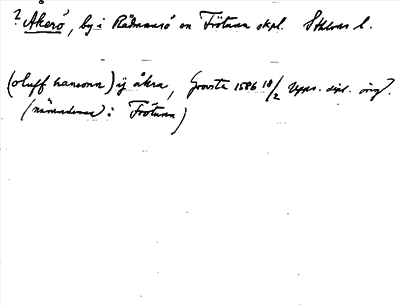 ? Åkerö, by i Rådmansö en Frötuna skpl. Sthlms l.
(oluff hansonn) ij åkra, Gravsta 1586 18/2 Upps. dipl. orig.
(närvarande: Frötuna)